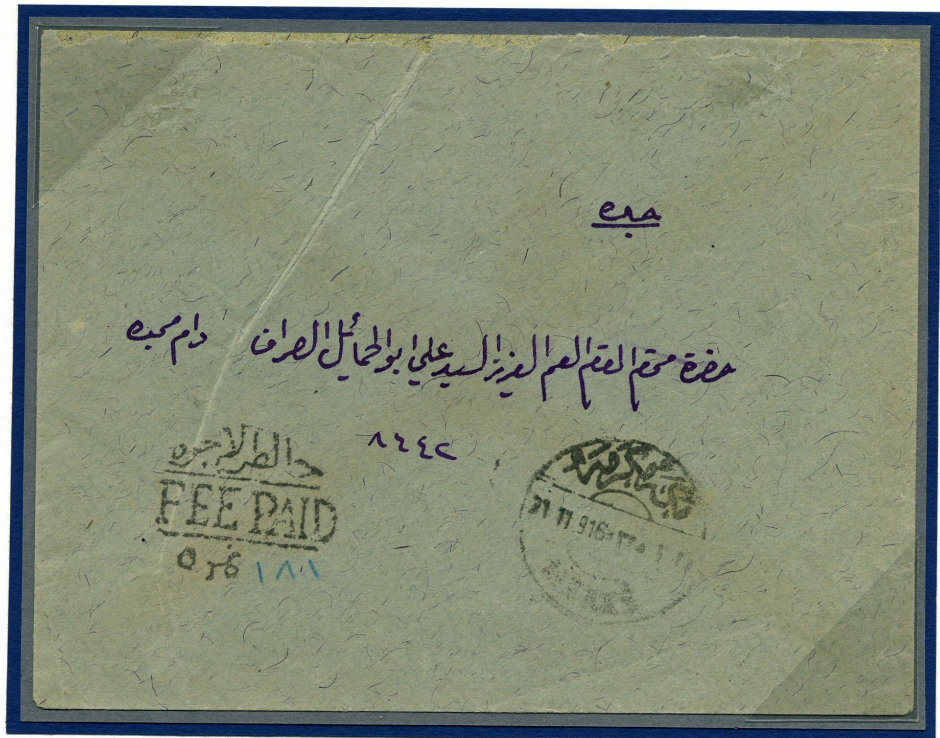 جده
حضرة محترم المقام العم العزيز السيد علي ابو الحمائل الصراف دام مجده
٨٤٤٢
خالص الاجره
FEE PAID
مكة مكرمة
21 11 916
١٨١